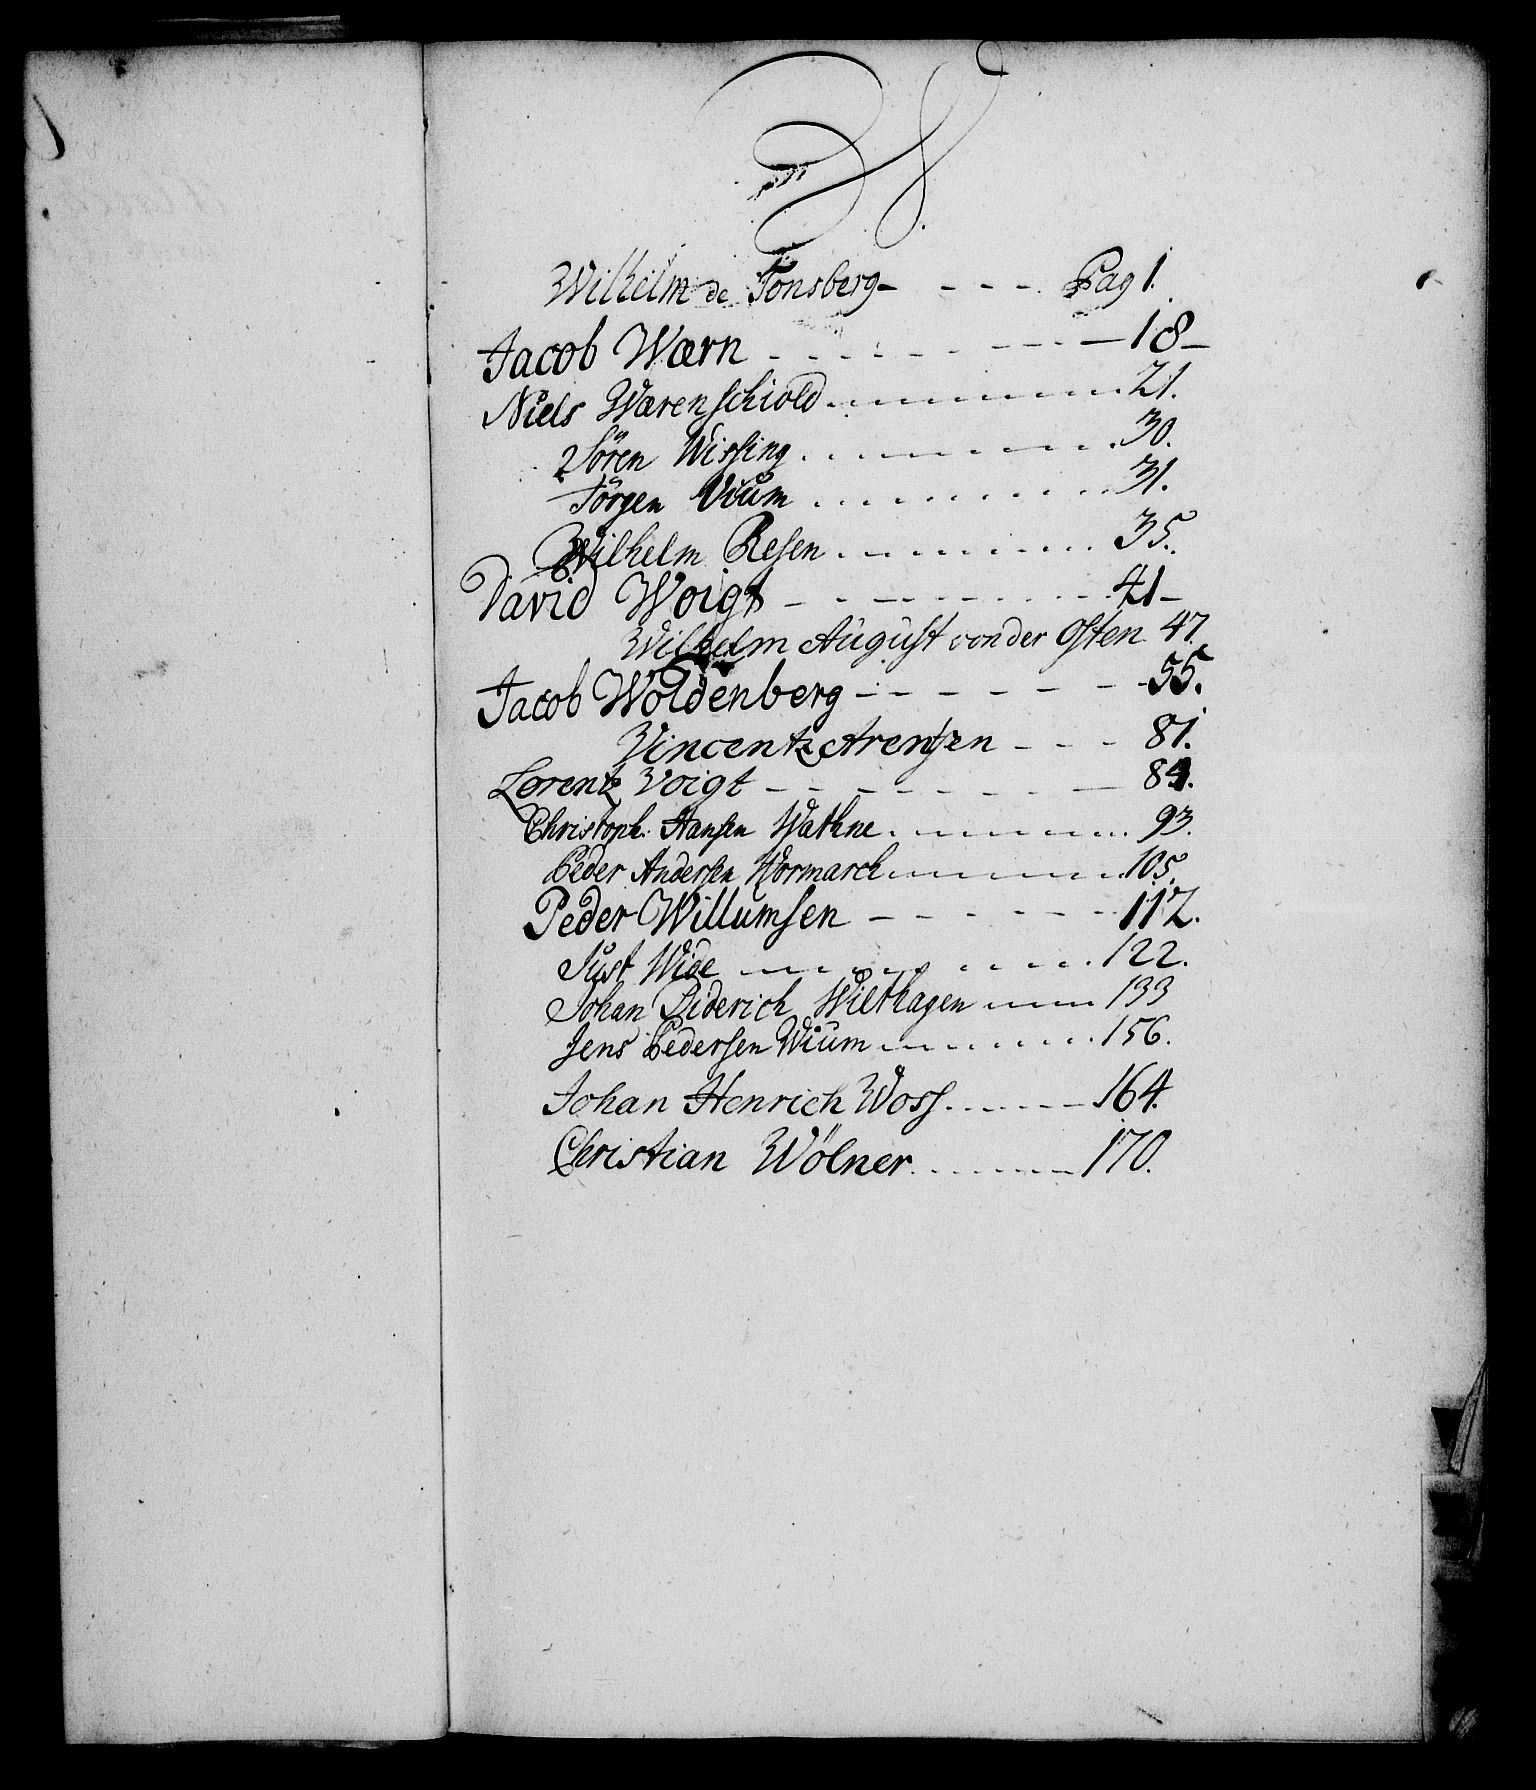 W.
Wilhelm de Tonsberg - - - - Pag 1.
Jacob Wærn - - - - - - - 18 -
Niels Wærenschiold - - - - - 21.
Sören Wissing - - - - - - 30.
Jörgen Wium - - - - - - 31.
Wilhelm Resen - - - - - 35.
David Woigt - - - - - - 41 -
Wilhelm August von der Osten 47.
Jacob Woldenberg - - - - - - 55.
Vincentz Arentzen - - - 81.
Lorentz Voigt - - - - - - -
Christoph: Hansen Wathne - - - - - 93.
Peder Andersen Wormarck - - - - - 105.
Peder Willumsen - - - - - 112.
Just Wide - - - - - - 122.
Johan Diderich Wilthagen - - - 133
Jens Pedersen Wium - - - - - 156.
Johan Henrich Woss - - - - 164.
Christian Wölner - - - - - 170.